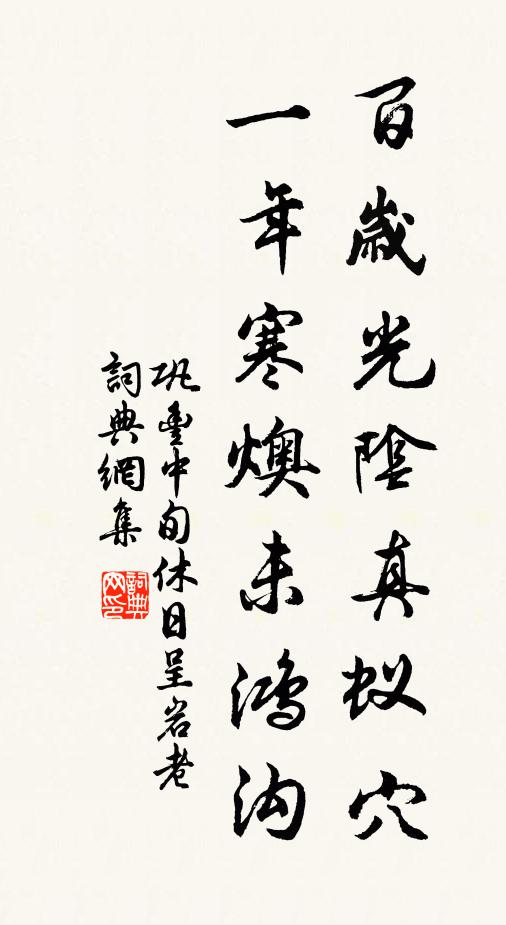 百歲光陰真蚁穴
一年寒燠未鴻沟
巩豐中旬休日呈岩老
詞典網集
詞典
网印